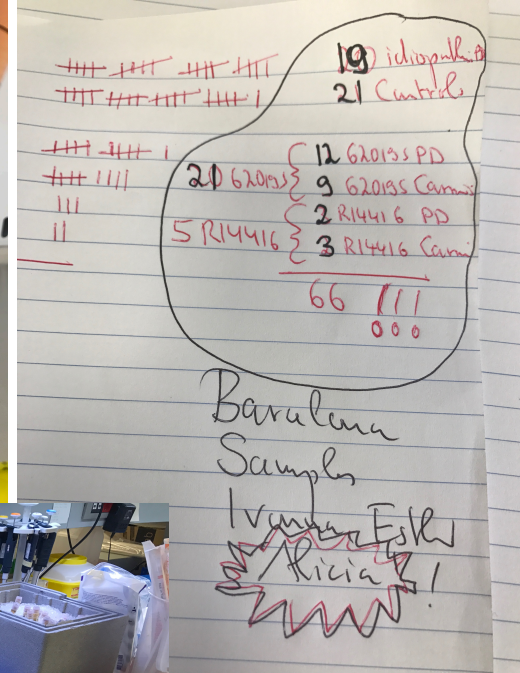 19 idiopathic
21 Controls
12 G2019S PD
21 G2019S
9 G2019S Carriers
2 R1441G PD
5 R1441G
3 R1441G Carri
66 !!!
Barcelona
Samples
Ivanna, Esther
Alicia !